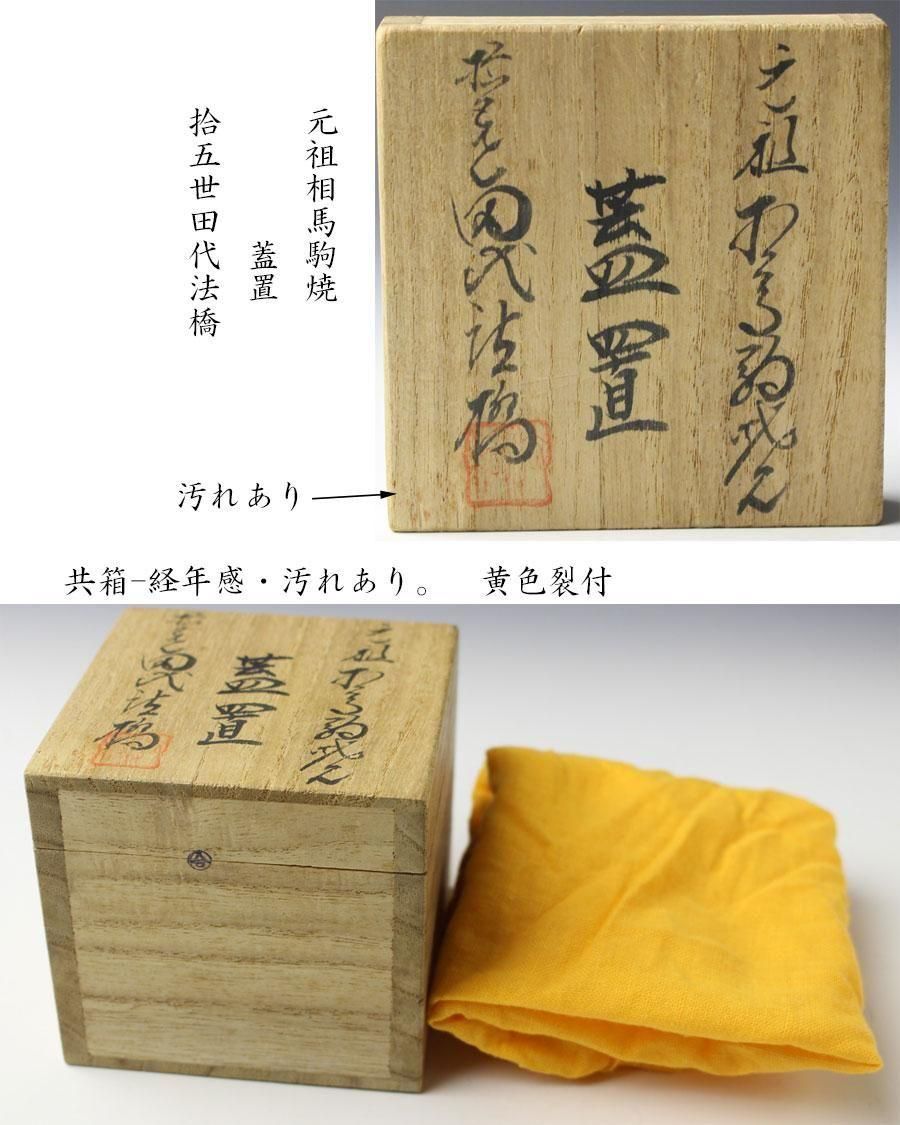 元祖相馬駒焼
蓋置
拾五世田代法橋
元祖相馬駒焼
蓋置
拾五世田代法橋
汚れあり
共箱-経年感・汚れあり。 黄色裂付
元祖相馬駒焼
蓋置
拾五世田代法橋
合